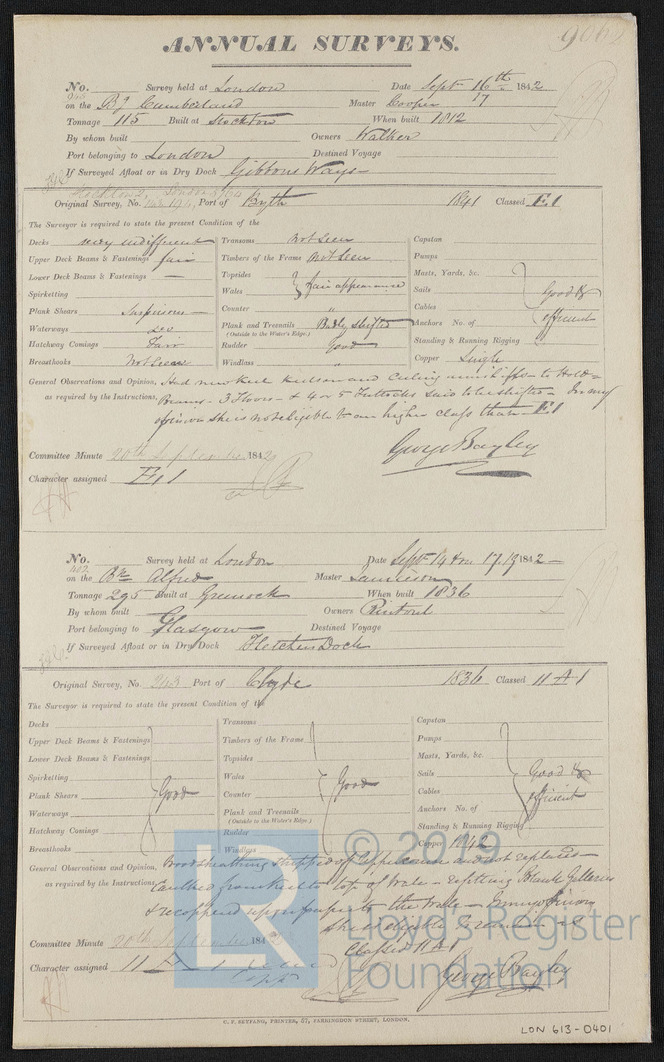 9062
ANNUAL SURVEYS.
No. Survey held at London Date Sept 16th 1842
on the Bg Cumberland Master Cooper 17
Tonnage 115 Built at Stockton When built 1812
By whom built Owners Walker
Port belonging to London Destined Voyage
If Surveyed Afloat or in Dry Dock Gibbons Ways
Original Survey, No. Port of Blyth 1841 Classed E.1
The Surveyor is required to state the present Condition of the
Decks very indifferent Transoms Not Seen Capstan
Upper Deck Beams & Fastenings fair Timbers of the Frame Not Seen Pumps
Lower Deck Beams & Fastenings — Topsides Masts, Yards, &c.
Spirketting Wales fair appearance Sails Good &
Plank Shears Suspicious Counter " Cables efficient
Waterways Do Plank and Treenails Badly shifted Anchors No. of
(Outside to the Water's Edge.)
Hatchway Comings Fair Rudder Good Standing & Running Rigging
Breasthooks Not Seen Windlass " Copper Single
General Observations and Opinion, Had new Keel Keelson and Ceiling to Hold
as required by the Instructions, Beams - 3 Floors - & 4 or 5 Futtocks Said to be shifted - In my
opinion she is not eligible to an higher class than - E1
George Bayley
Committee Minute 20th September 1842
Character assigned E.1
No. Survey held at London Date Sept 14 17.19 1842
402
on the Bk Alfred Master Jamieson
Tonnage 295 Built at Greenock When built 1836
By whom built Owners Rintoul
Port belonging to Glasgow Destined Voyage
If Surveyed Afloat or in Dry Dock Fletchers Dock
Original Survey, No. Port of Clyde 1836 Classed 11 A 1
The Surveyor is required to state the present Condition of the
Decks Transoms Capstan
Upper Deck Beams & Fastenings Timbers of the Frame Pumps
Lower Deck Beams & Fastenings Topsides Masts, Yards, &c.
Spirketting Wales Good Sails Good &
Plank Shears Good Counter Cables efficient
Waterways Plank and Treenails Anchors No. of
(Outside to the Water's Edge.)
Hatchway Comings Rudder Standing & Running Rigging
Breasthooks Windlass Copper 1842
General Observations and Opinion, Wood sheathing stripped off and not replaced
as required by the Instructions, Caulked from Keel to top of Wale -
& recoppered upon to the Wale - In my opinion
she is eligible to remain as
Classed 11 A 1
Committee Minute 20th September 1842
Character assigned 11
George Bayley
C. F. SEYFANG, PRINTER, 57, FARRINGDON STREET, LONDON.
LON 613-0401
LR
© 2019
Lloyd's Register
Foundation